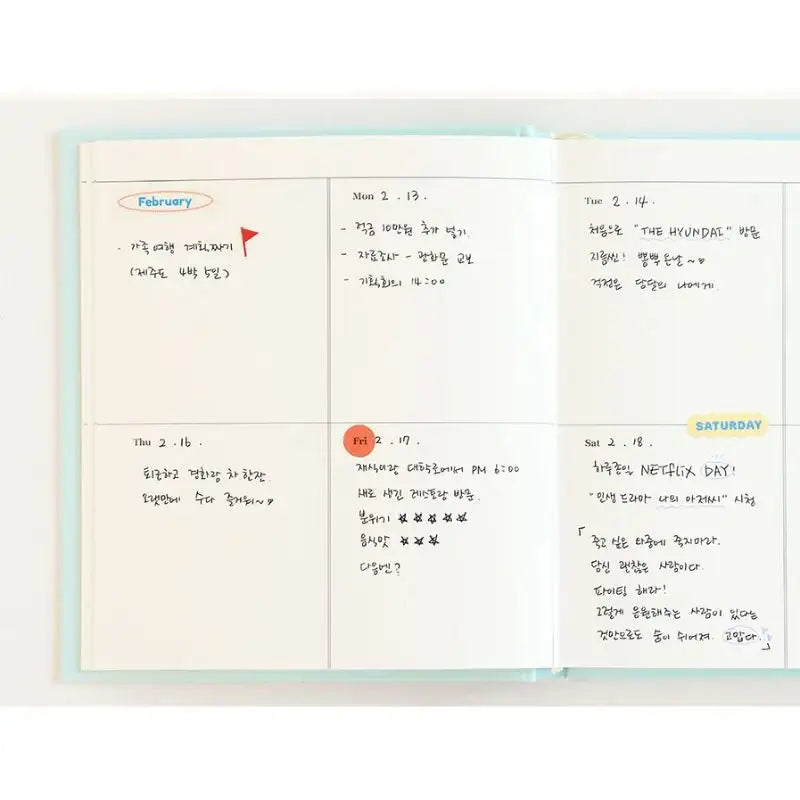 February
· 가족여행 계획짜기
(제주도 4박 5일)
Mon 2 . 13 .
- 적금 10만원 추가 넣기.
- 자료조사 - 광화문 교보
- 기획회의 14:00
Tue 2 . 14 .
처음으로 "THE HYUNDAI" 방문
지름신! 뿜뿜 온날~♡
걱정은 담달의 나에게.
Thu 2 . 16 .
퇴근하고 경화랑 차 한잔.
오랫만에 수다 즐거워~♡
Fri 2 . 17 .
재식이랑 대학로에서 PM 6:00
새로 생긴 레스토랑 방문.
분위기 ★★★★★
음식맛 ★★★
다음엔?
SATURDAY
Sat 2 . 18 .
하루종일 NETFLIX DAY!
"인생 드라마 나의 아저씨" 시청
「죽고 싶은 와중에 죽지마라.
당신 괜찮은 사람이다.
파이팅 해라!
그렇게 응원해주는 사람이 있다는
것만으로도 숨이 쉬어져. 고맙다.」